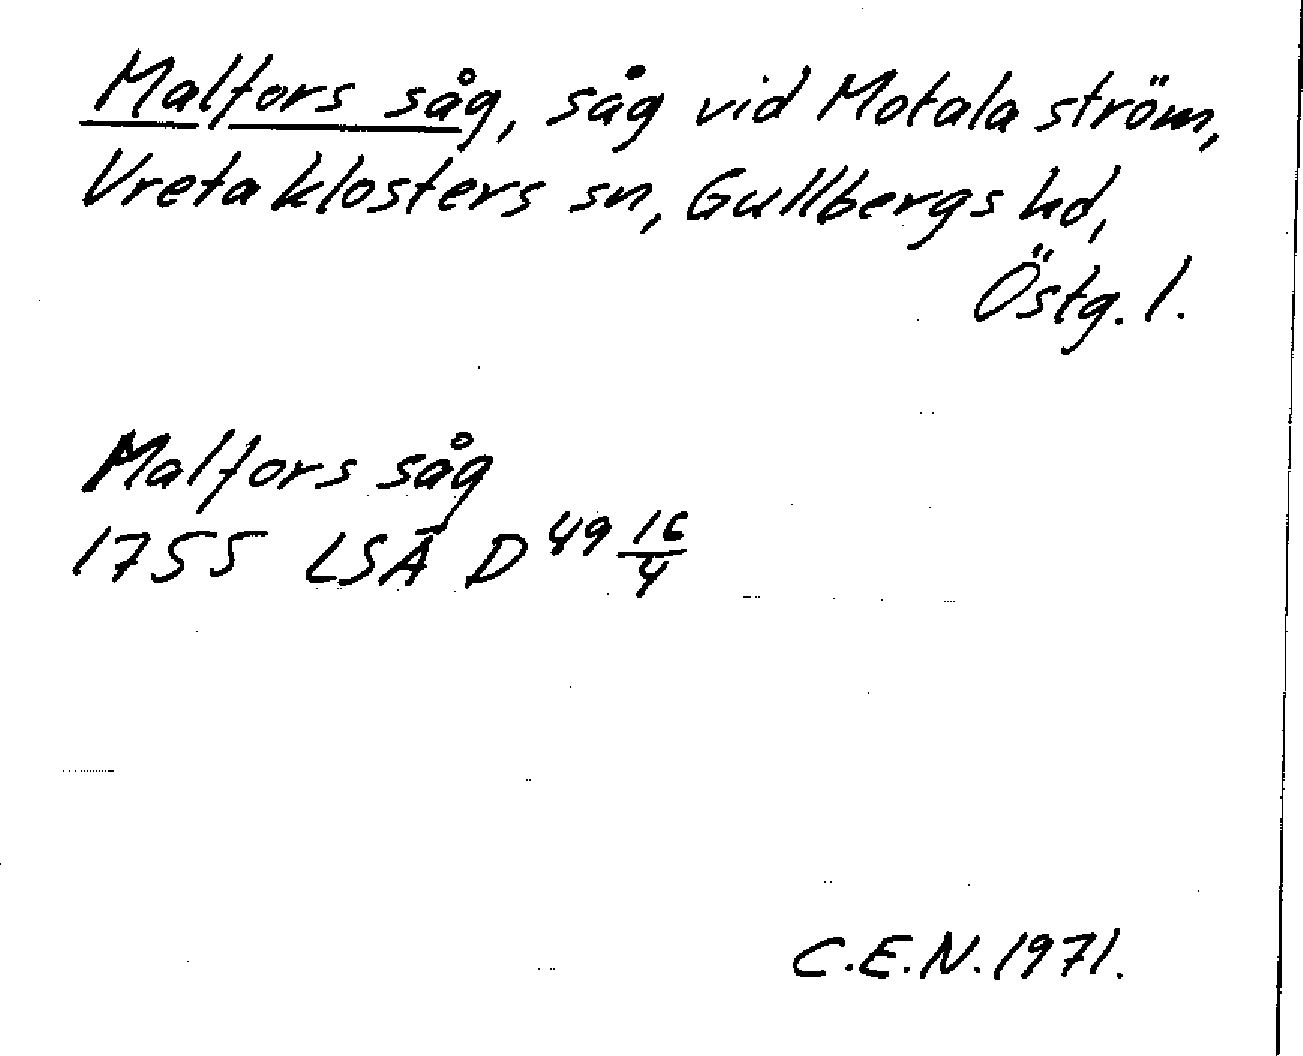 Malfors såg, såg vid Motala ström,
Vreta klosters sn, Gullbergs hd,
Östg. l.
Malfors såg
1755 LSA D49 16/4
C.E.N. 1971.